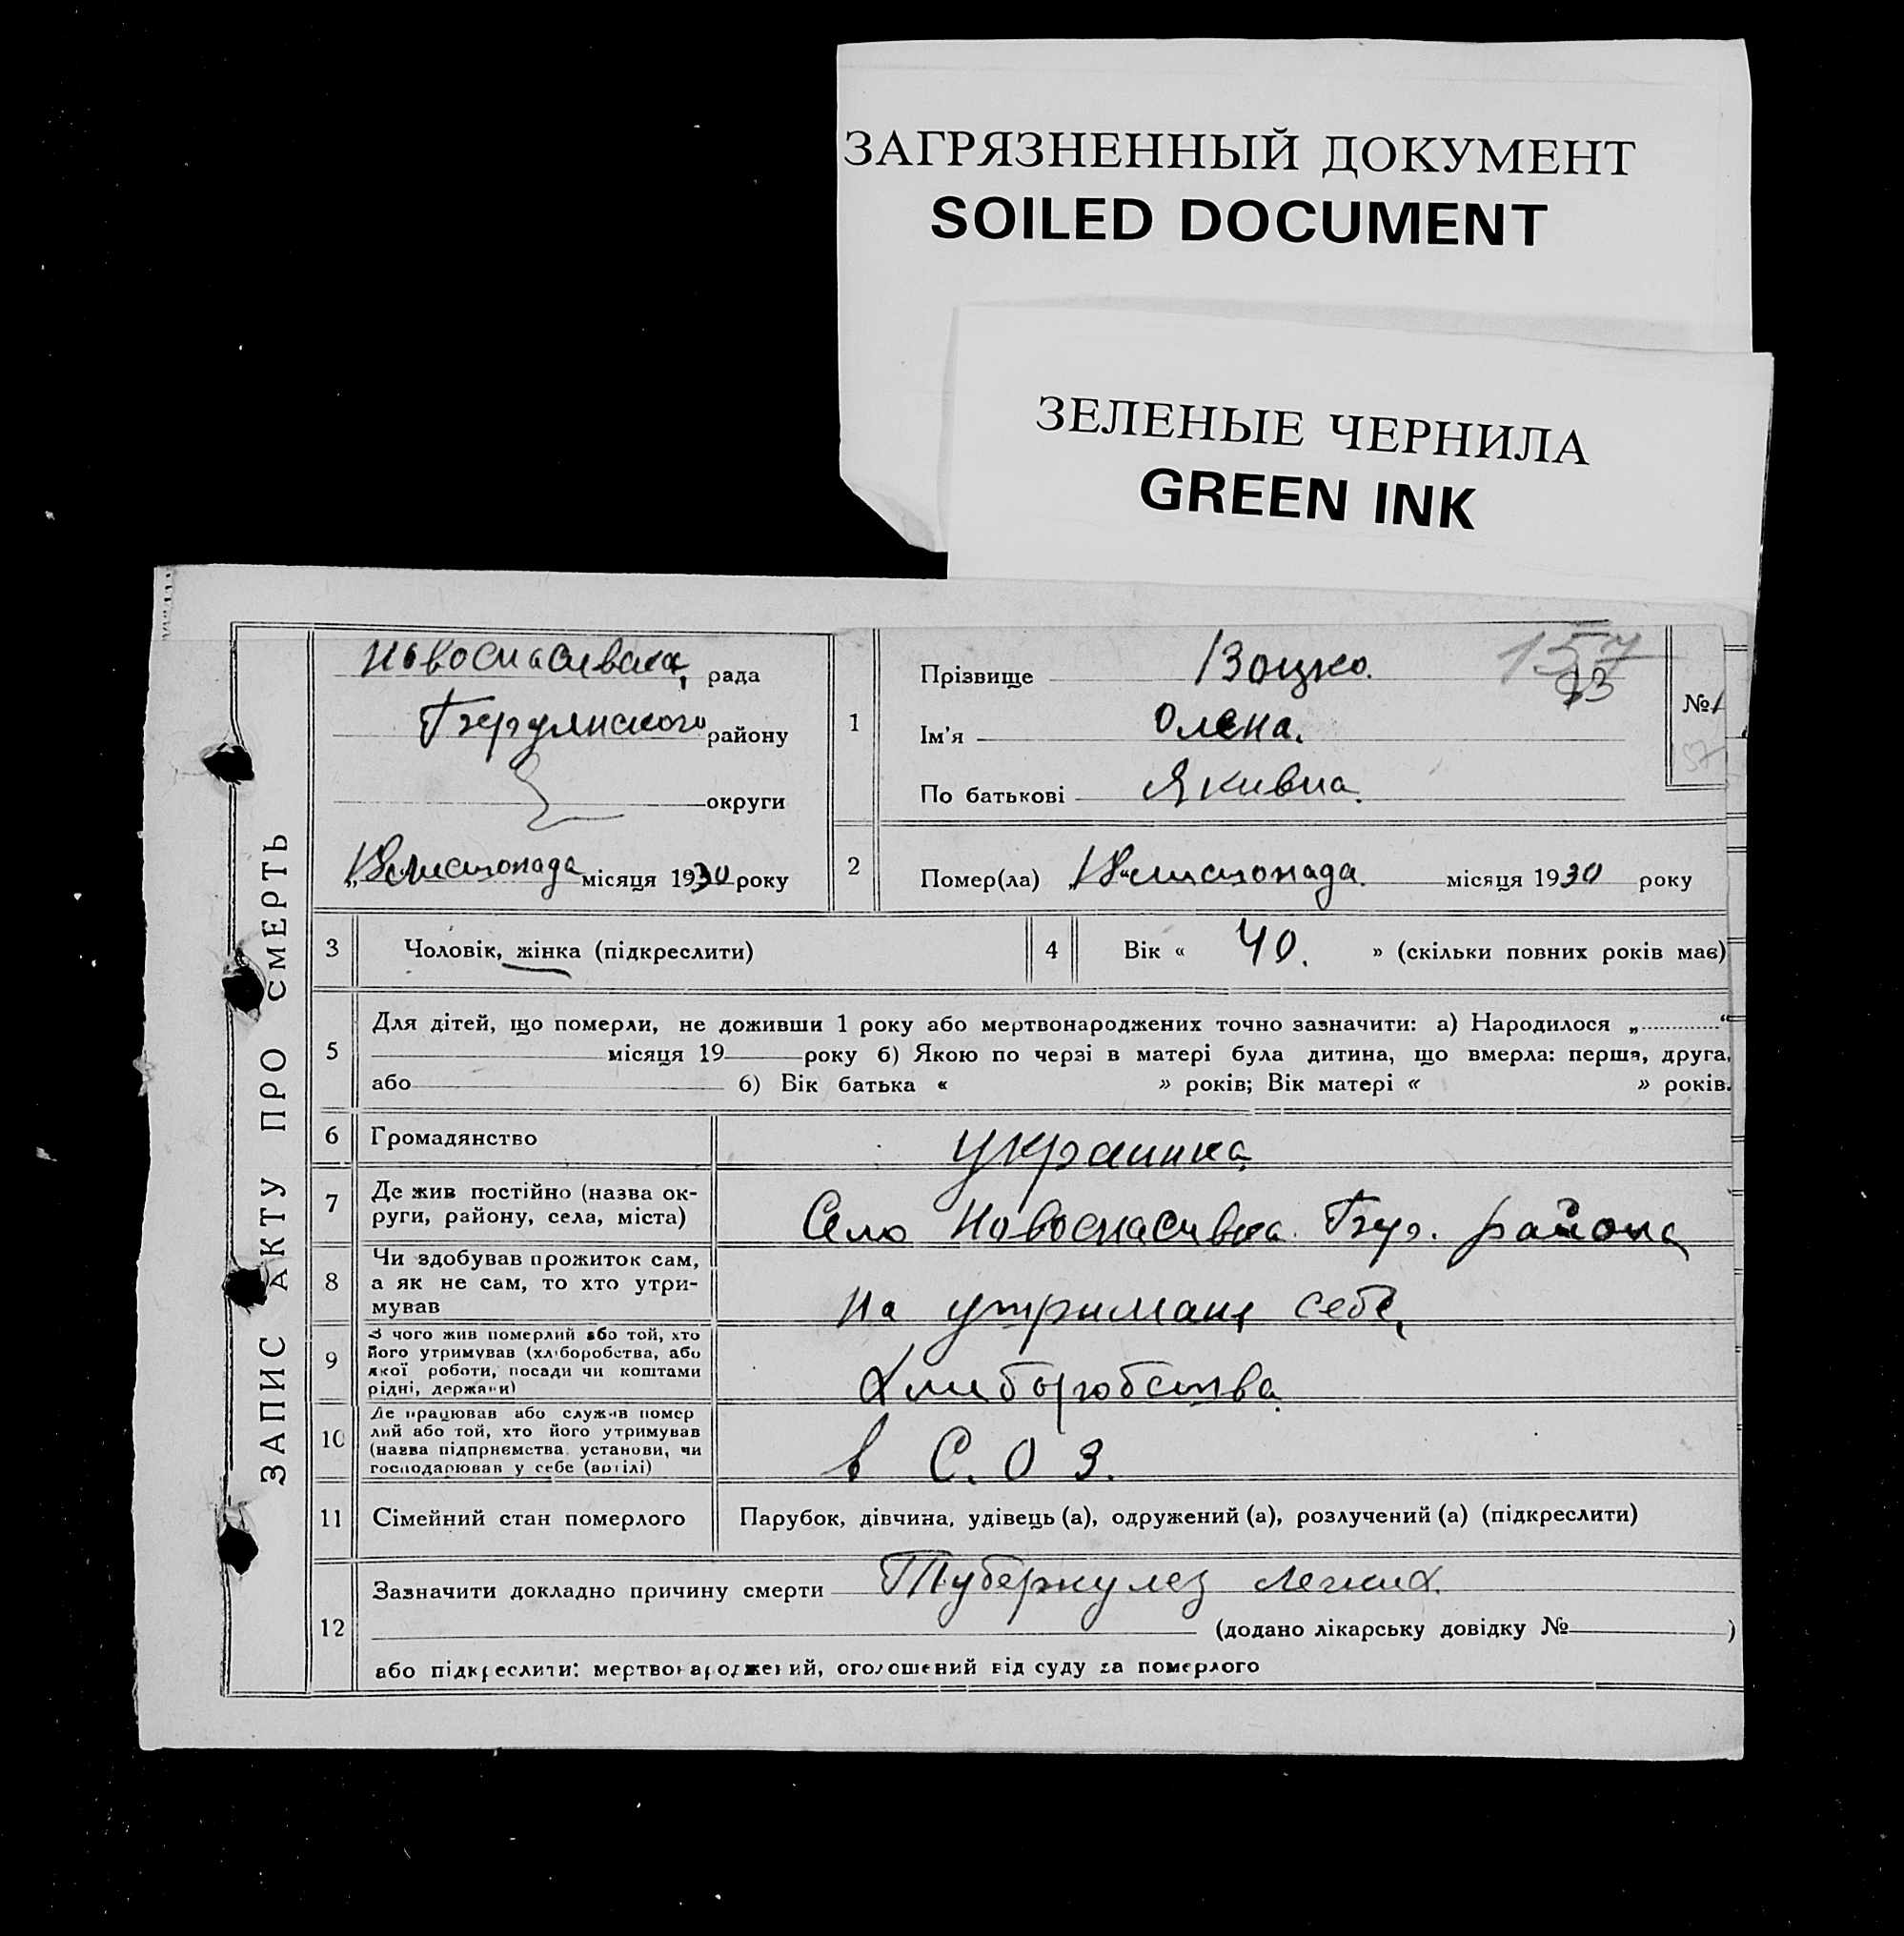 ЗАГРЯЗНЕННЫЙ ДОКУМЕНТ
SOILED DOCUMENT
ЗЕЛЕНЫЕ ЧЕРНИЛА
GREEN INK
ЗАПИС АКТУ ПРО СМЕРТЬ
Новоспасивска рада
району
округи
листопада місяця 1930 року
1
Прізвище
157
93
№
Ім'я Олена.
По батькові Якивна.
2
Помер(ла) листопада. місяця 1930 року
3 Чоловік, жінка (підкреслити)
4 Вік « 40. » (скільки повних років має)
5
Для дітей, що померли, не доживши 1 року або мертвонароджених точно зазначити: а) Народилося „ “
місяця 19 року б) Якою по черзі в матері була дитина, що вмерла: перша, друга,
або б) Вік батька « » років; Вік матері « » років.
6 Громадянство украинка
7
Де жив постійно (назва ок-
руги, району, села, міста)
Село Новоспасивка Бер. района
8
Чи здобував прожиток сам,
а як не сам, то хто утри-
мував
на утримані себе,
9
З чого жив померлий або той, хто
його утримував (хліборобства, або
якої роботи, посади чи коштами
рідні, держави)
Хлиборобства
10
Де працював або служив помер
лий або той, хто його утримував
(назва підприємства, установи, чи
господарював у себе (артілі)
в С. О З.
11 Сімейний стан померлого Парубок, дівчина, удівець (а), одружений (а), розлучений (а) (підкреслити)
12
Зазначити докладно причину смерти Туберкулез легких.
(додано лікарську довідку № )
або підкреслити: мертвонароджений, оголошений від суду за померлого